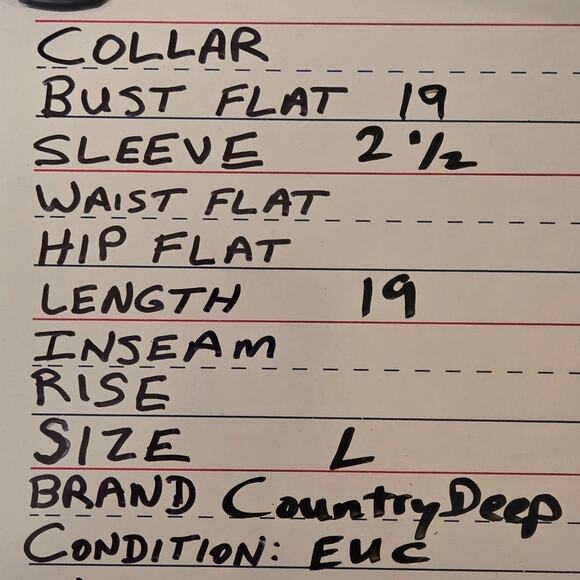 COLLAR
BUST FLAT 19
SLEEVE 2 1/2
WAIST FLAT
HIP FLAT
LENGTH 19
INSEAM
RISE
SIZE L
BRAND Country Deep
CONDITION: EUC